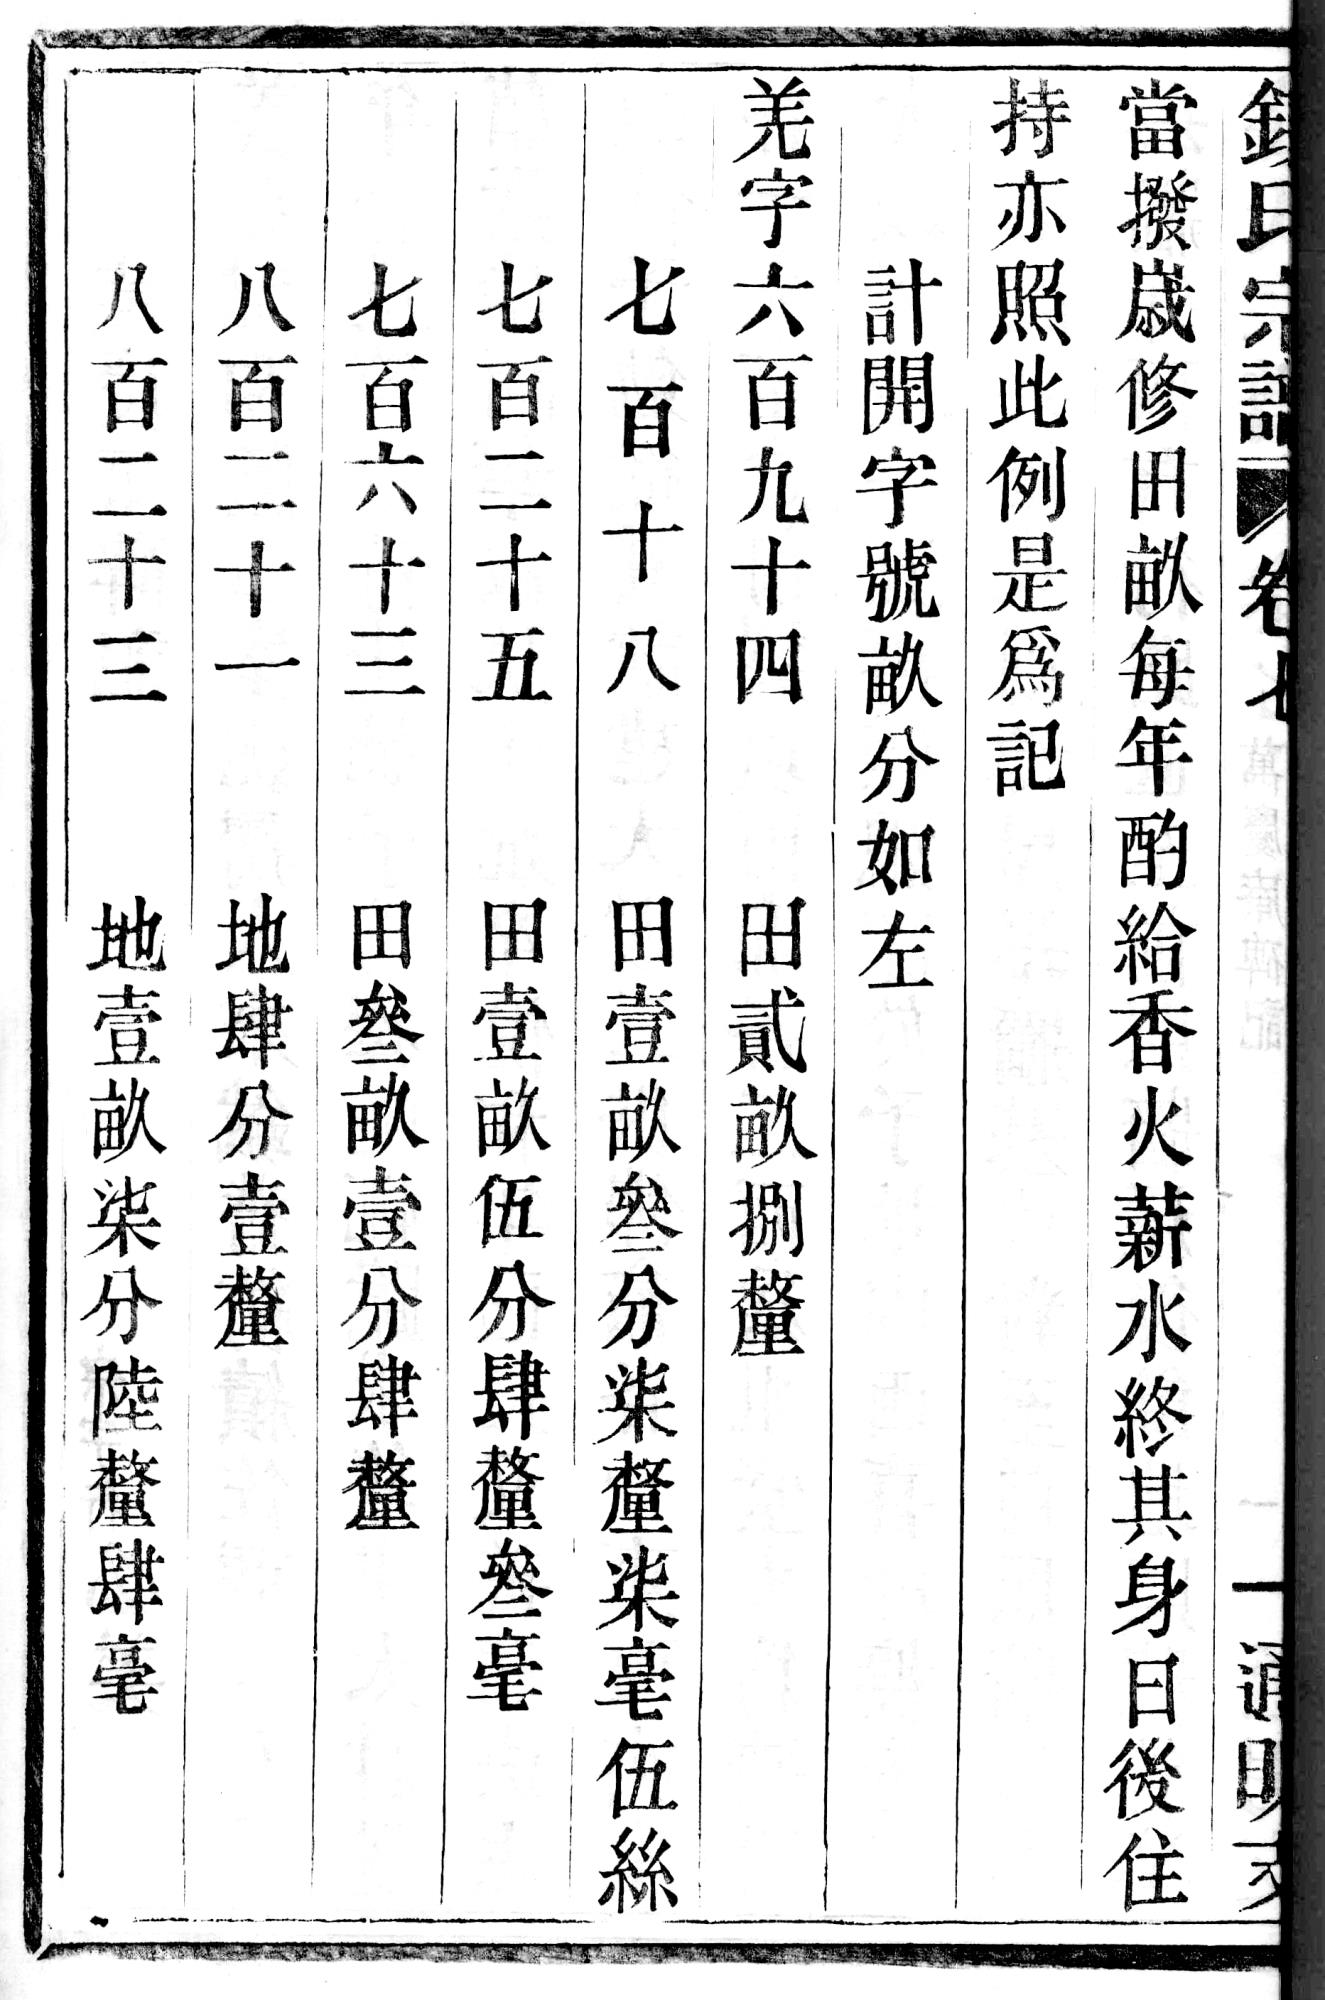 錢氏宗譜 卷七 一 通明文
當撥歲修田畝每年酌給香火薪水終其身日後住
持亦照此例是爲記
計開字號畝分如左
羌字六百九十四 田貳畝捌釐
七百十八 田壹畝叄分柒釐柒毫伍絲
七百二十五 田壹畝伍分肆釐叄毫
七百六十三 田叄畝壹分肆釐
八百二十一 地肆分壹釐
八百二十三 地壹畝柒分陸釐肆毫